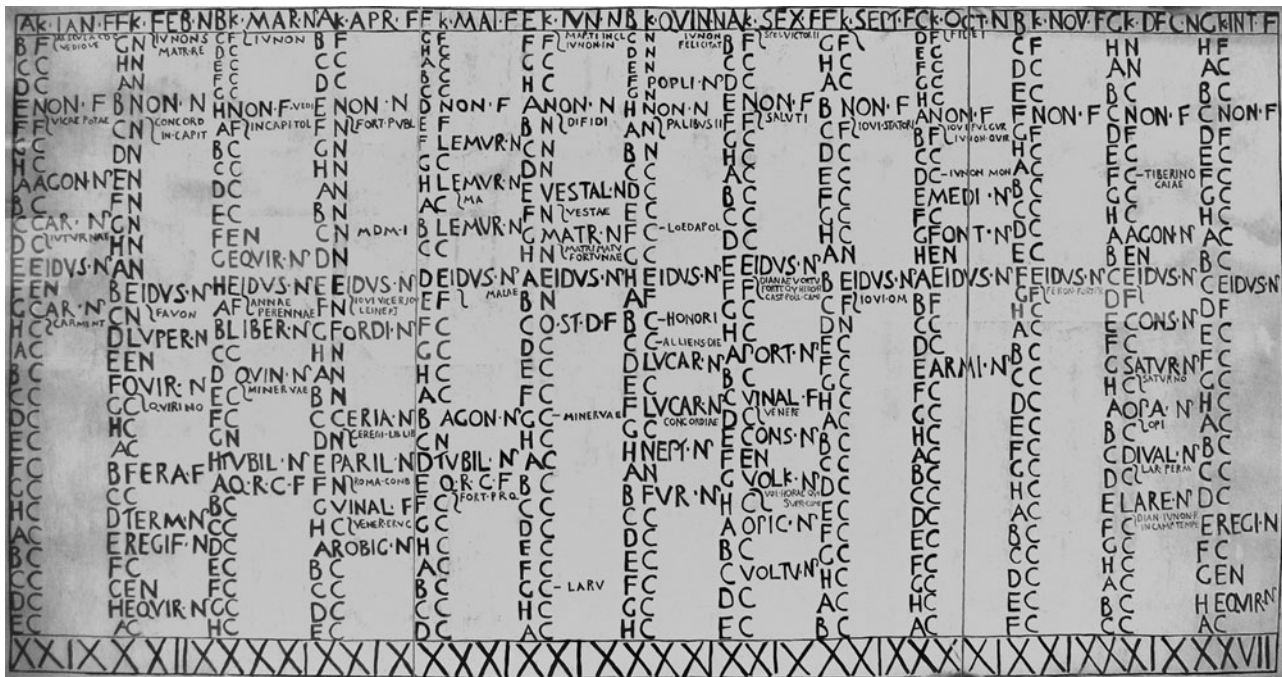 AK·IAN·F FK·FEB·N BK·MAR·N AK·APR·F FK·MAI·F EK·IVN·N BK·QVIN·N AK·SEX·F FK·SEPT·F CK·OCT·N BK·NOV·F GK·DEC·N GK·INT·F
B F AESCVLA CO
VEDIOVE
C C
D C
E NON·F
F F VICAE POTAE
G C
H C
A AGON·N
B C
C CAR·N
D C IVTVRNAE
E EIDVS·N
F EN
G CAR·N
H C CARMENT
A C
B C
C C
D C
E C
F C
G C
H C
A C
B C
C C
D C
E C
G N IVNON S
MATR·RE
H N
A N
B NON·N
C N CONCORD
IN·CAPIT
D N
E N
F N
G N
H N
A N
B EIDVS·N
C N FAVON
D LVPER·N
E EN
F QVIR·N
G C QVIRINO
H C
A C
B FERA·F
C C
D TERM·N
E REGIF·N
F C
G EN
H EQVIR·N
A C
C F IVNON
D C
E C
F C
G C
H NON·F VEDI
A F IN CAPITOL
B C
C C
D C
E C
F EN
G EQVIR·N
H EIDVS·N
A F ANNAE
PERENNAE
B LIBER·N
C C
D QVIN·N
E C MINERVAE
F C
G N
H TVBIL·N
A Q·R·C·F
B C
C C
D C
E C
F C
G C
H C
B F
C C
D C
E NON·N
F N FORT·PVBL
G N
H N
A N
B N
C N MDM·I
D N
E EIDVS·N
F N
G FORDI·N
H N
A N
B N
C CERIA·N
D N CERERI·LIB·LIB
E PARIL·N
F N ROMA·COND
G VINAL·F
H C VENER·ERVC
A ROBIG·N
B C
C C
D C
E C
G F
H C
A C
B C
C C
D NON·F
E F
F LEMVR·N
G C
H LEMVR·N
A C MA
B LEMVR·N
C C
D EIDVS·N
E F MAIAE
F C
G C
H C
A C
B AGON·N
C N
D TVBIL·N
E Q·R·C·F
F C FORT·P·R·Q
G C
H C
A C
B C
C C
D C
F F MARTI IN CL
IVNON·IN
G C
H C
A NON·N
B N DIFIDI
C N
D N
E VESTAL·N
F N VESTAE
G MATR·N
H N MATRI MATV
FORTVNAE
A EIDVS·N
B N
C Q·ST·D·F
D C
E C
F C
G C MINERVAE
H C
A C
B C
C C
D C
E C
F C
G C LARV
H C
A C
C N
D N
E N
F POPLI·N
G N
H NON·N
A N PALIBVS II
B N
C N
D C
E C
F C LOEDAPOL
G C
H EIDVS·N
A F
B C HONORI
C C ALLIENS DIE
D LVCAR·N
E C
F LVCAR·N
G C CONCORDIAE
H NEPT·N
A N
B FVR·N
C C
D C
E C
F C
G C
H C
IVNON
FELICITAT
B F SPEI VICTOR II
C C
D C
E NON·F
F F SALVTI
G C
H C
A C
B C
C C
D C
E EIDVS·N
F F DIANAE VORTV
CAST·POLL·CAM
G C
H C
A PORT·N
B C
C VINAL·F
D C VENERE
E CONS·N
F EN
G VOLK·N
H C
A OPIC·N
B C
C VOLTV·N
D C
E C
G F
H C
A C
B NON·F
C F IOVI·STATORI
D C
E C
F C
G C
H C
A N
B EIDVS·N
C F IOVI·OM
D N
E C
F C
G C
H C
A C
B C
C C
D C
E C
F C
G C
H C
A C
B C
D F FIDEI
E C
F C
G C
H C
A NON·F
B F IOVI FVLGVR
IVNON·QVIR
C C
D C IVNON MON
E MEDI·N
F C
G FONT·N
H EN
A EIDVS·N
B F
C C
D C
E ARMI·N
F C
G C
H C
A C
B C
C C
D C
E C
F C
G C
H C
A C
C F
D C
E C
F NON·F
G F
H C
A C
B C
C C
D C
E C
F EIDVS·N
G F
H C
A C
B C
C C
D C
E C
F C
G C
H C
A C
B C
C C
D C
E C
F C
H N
A N
B C
C NON·F
D F
E C
F C TIBERINO
GAIAE
G C
H C
A AGON·N
B EN
C EIDVS·N
D F
E CONS·N
F C
G SATVRN·N
H C SATVRNO
A OPA·N
B C OPI
C DIVAL·N
D C LAR·PERM
E LARE·N
F C DIAN·IVNON·R
IN CAMP TEMPE
G C
H C
A C
B C
C C
H F
A C
B C
C NON·F
D F
E C
F C
G C
H C
A C
B C
C EIDVS·N
D F
E C
F C
G C
H C
A C
B C
C C
D C
E REGI·N
F C
G EN
H EQVIR·N
A C
XXIX XXIIX XXXI XXIX XXXI XXIX XXXI XXIX XXIX XXXI XXIX XXIX XXVII